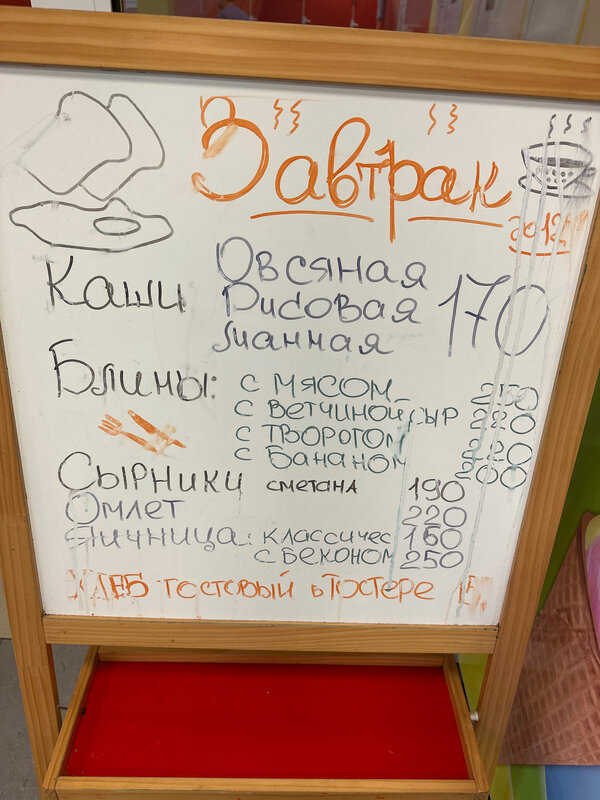 Завтрак
до 12⁰⁰
Каши Овсяная
Рисовая 170
манная
Блины: с мясом 250
с ветчиной сыр 220
с творогом 220
с бананом 200
Сырники сметана 190
Омлет 220
Яичница: классичес 160
с беконом 250
Хлеб тостовый в тостере